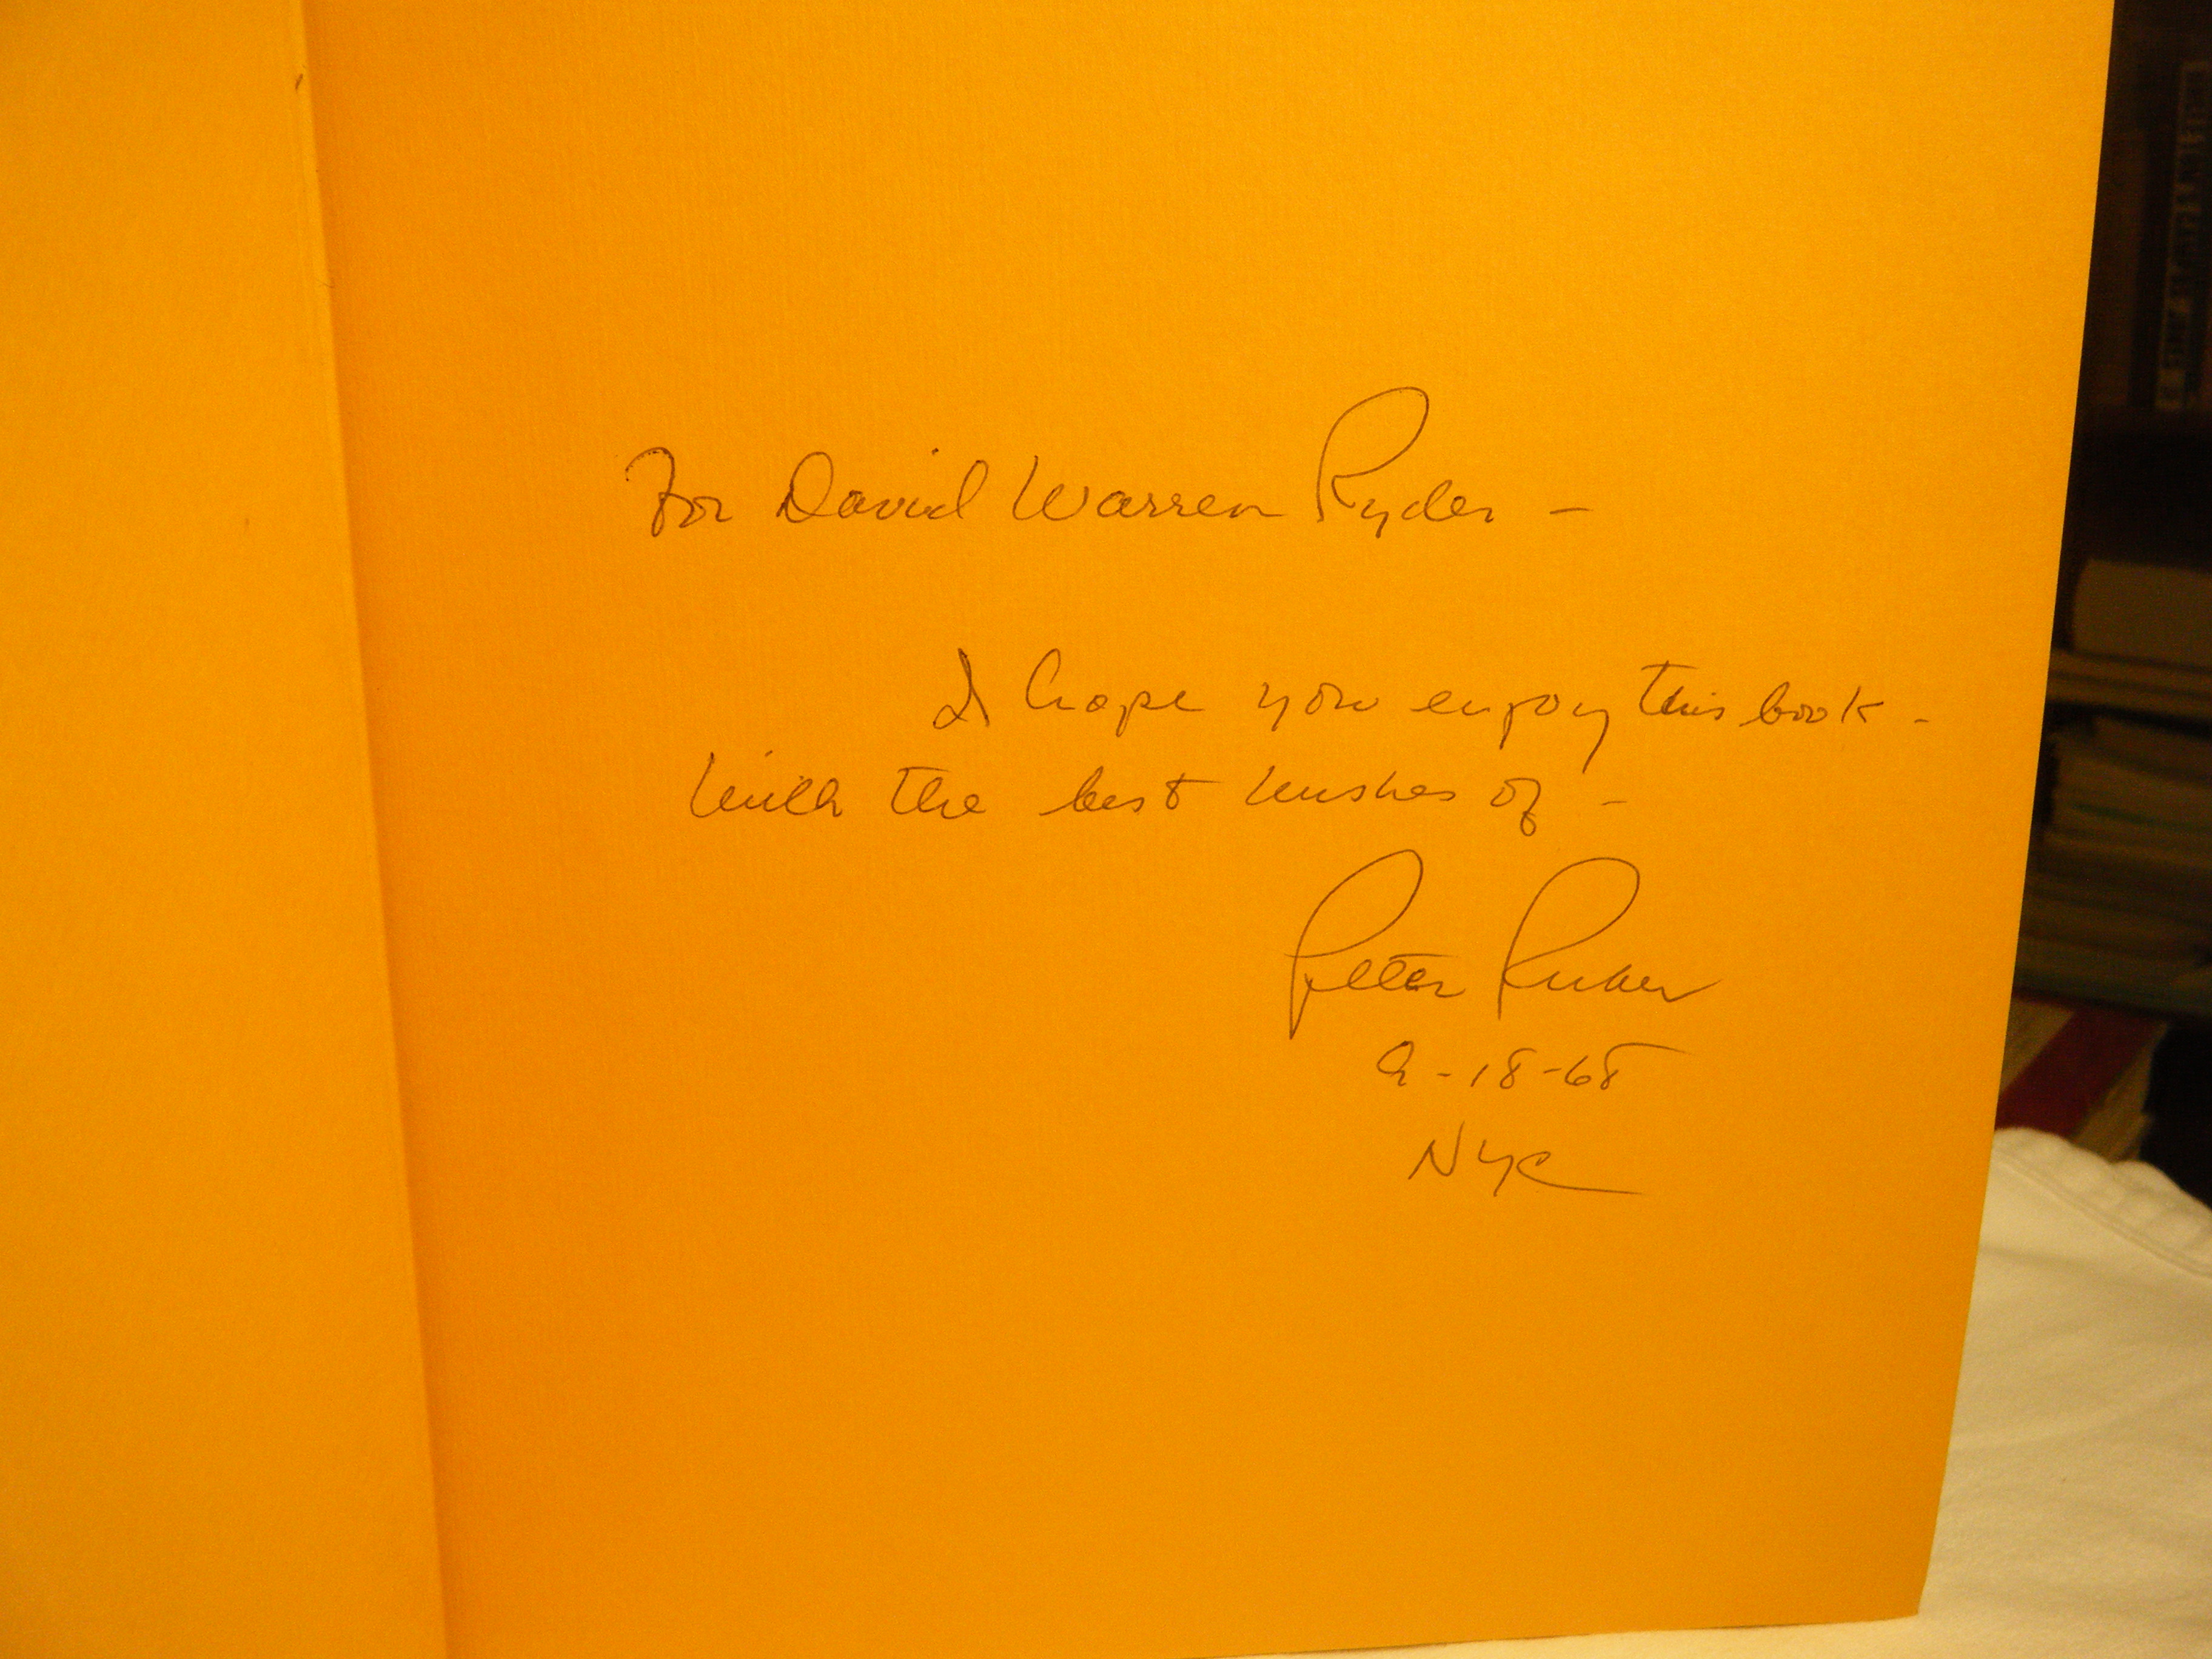 For David Warren Ryder –
I hope you enjoy this book –
With the best wishes of –
Peter Ruber
9-18-68
NYC